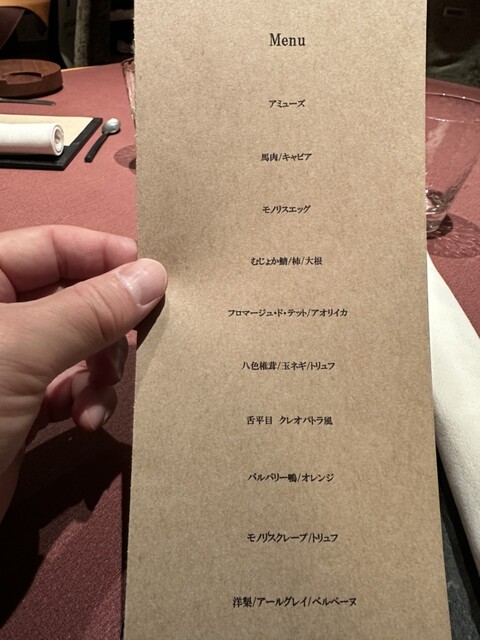 Menu
アミューズ
馬肉/キャビア
モノリスエッグ
むじょか鯖/柿/大根
フロマージュ・ド・テット/アオリイカ
八色椎茸/玉ネギ/トリュフ
舌平目 クレオパトラ風
バルバリー鴨/オレンジ
モノリスクレープ/トリュフ
洋梨/アールグレイ/ベルベーヌ